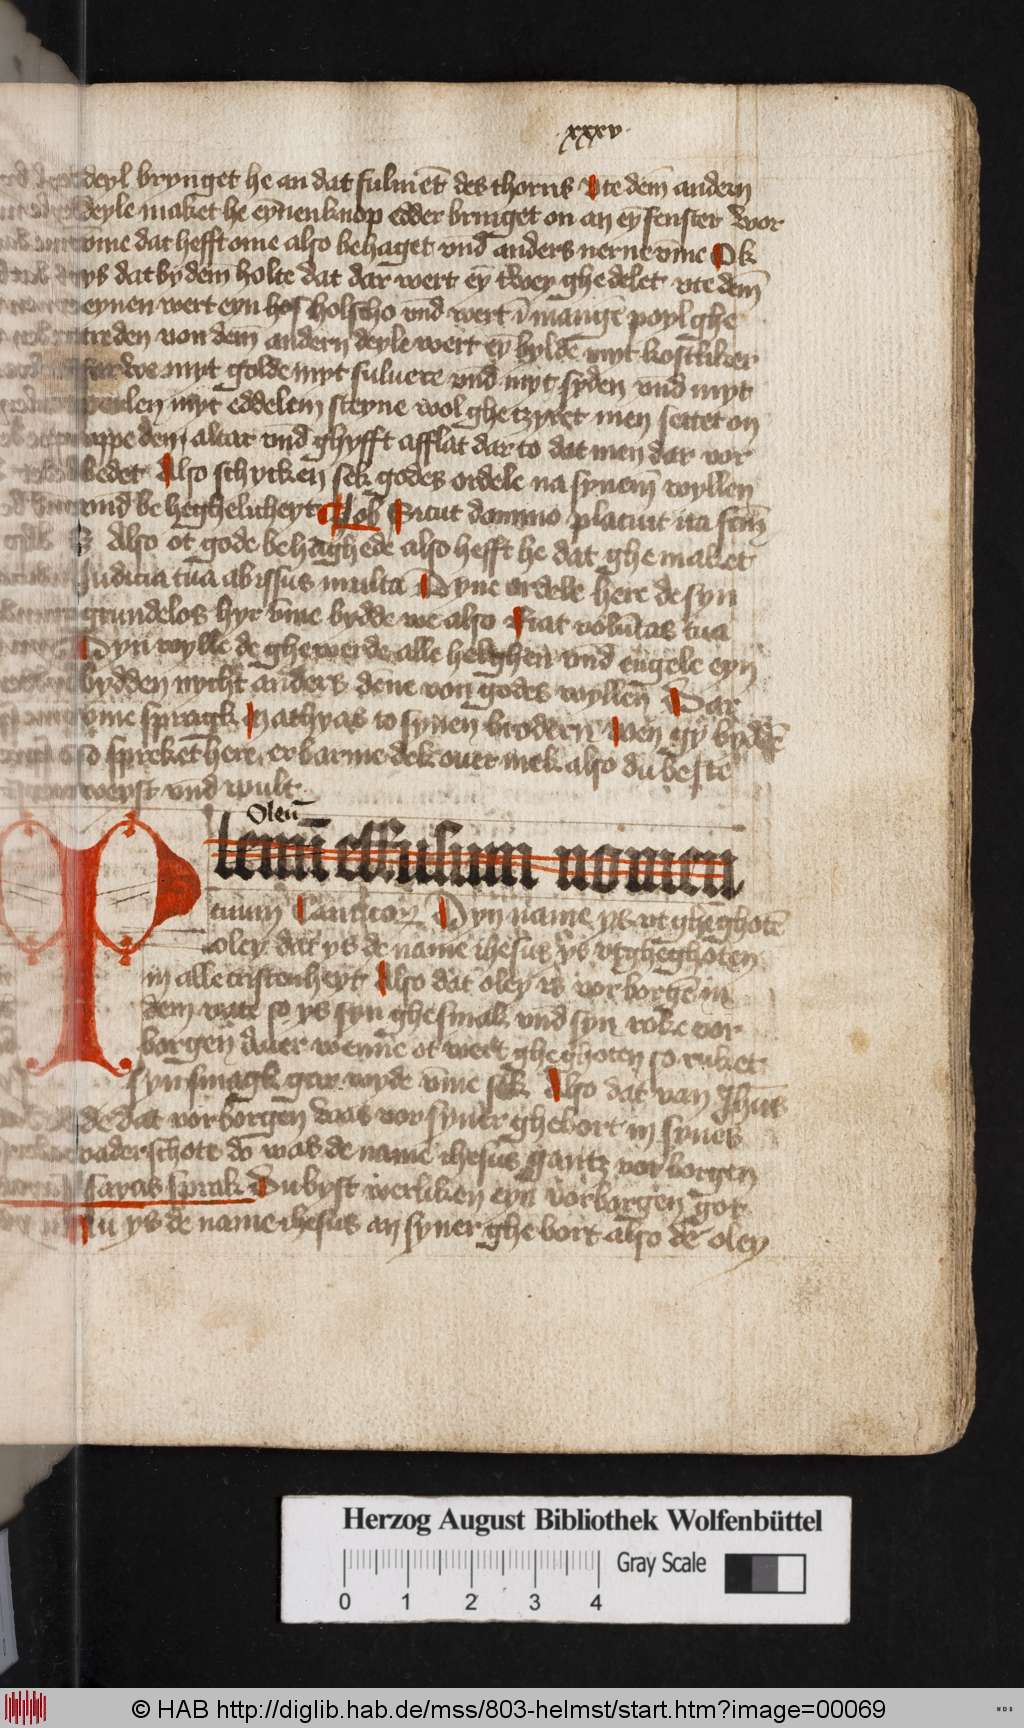 xxxv
deyl brynget he an dat fulmēt des thorns Vte dem andern
deyle maket he eynen knop edder bringet on an ey fenster wor
vme dat hefft ome also behaget vnd anders nerne vme Ok
ys dat by dem holte dat dar wert ey twey ghedelet vte dem
eynen wert eyn holscho vnd wert ī mangē poyl ghe
treden von dem andern deyle wert ey bylde myt kostliker
farwe myt golde myt suluere vnd myt syden vnd myt
perlen myt eddelem steyne wol ghetzyret men settet on
vppe dem altar vnd ghyfft afflat dar to dat men dar vor
bedet Also schycken sek godes ordele na synem wyllen
vnd beheghelicheyt Job Sicut domino placuit ita fcm̄
Also ot gode behaghede also hefft he dat ghemaket
Judicia tua abissus multa Dyne ordele here de syn
grundelos hyr vme bydde we also Fiat volūtas tua
Dyn wylle de ghewerde alle helghen vnd engele eyn
bydden nycht anders dene von godes wyllen Dar
vme spragk Mathyas to synen brodern wen gy bydde
so spreket here erbarme dek ouer mek also du beste
weyst vnd wult
Oleū
lemū effusum nomen
tuum Canticor Dyn name ys vt gheghotē
oley dat ys de name ihesus ys vtgheghoten
in alle cristenheyt Also dat oley is vorborgē in
dem vate so ys syn ghesmak vnd syn roke vor
borgen Auer wenne ot wert gheghoten so ruket
syn smagk gar wyde vme sek Also dat van Jhūs
de dat vorborgen was vor syner ghebort in synes
vader schote do was de name ihesus gantz vorborgen
sayas sprak Du byst werliken eyn vorborgen got
Nu ys de name ihesus an syner ghebort also de oley
Herzog August Bibliothek Wolfenbüttel
Gray Scale
0 1 2 3 4
© HAB http://diglib.hab.de/mss/803-helmst/start.htm?image=00069